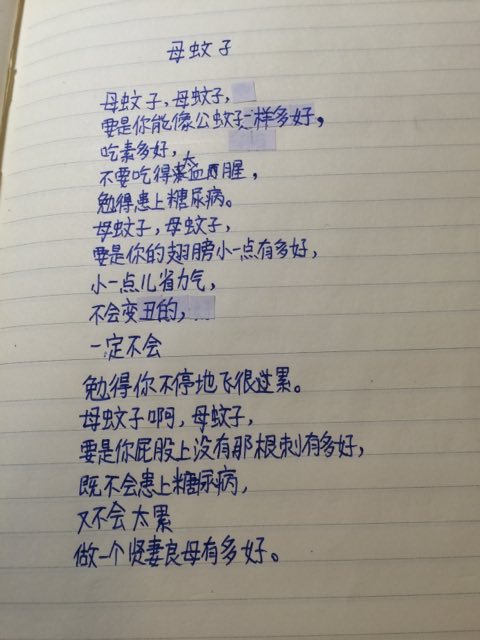 母蚊子
母蚊子,母蚊子,
要是你能像公蚊子一样多好,
吃素多好,
不要吃得太血腥,
勉得患上糖尿病。
母蚊子,母蚊子,
要是你的翅膀小一点有多好,
小一点儿省力气,
不会变丑的,
一定不会
勉得你不停地飞很过累。
母蚊子啊,母蚊子,
要是你屁股上没有那根刺有多好,
既不会患上糖尿病,
又不会太累
做一个贤妻良母有多好。